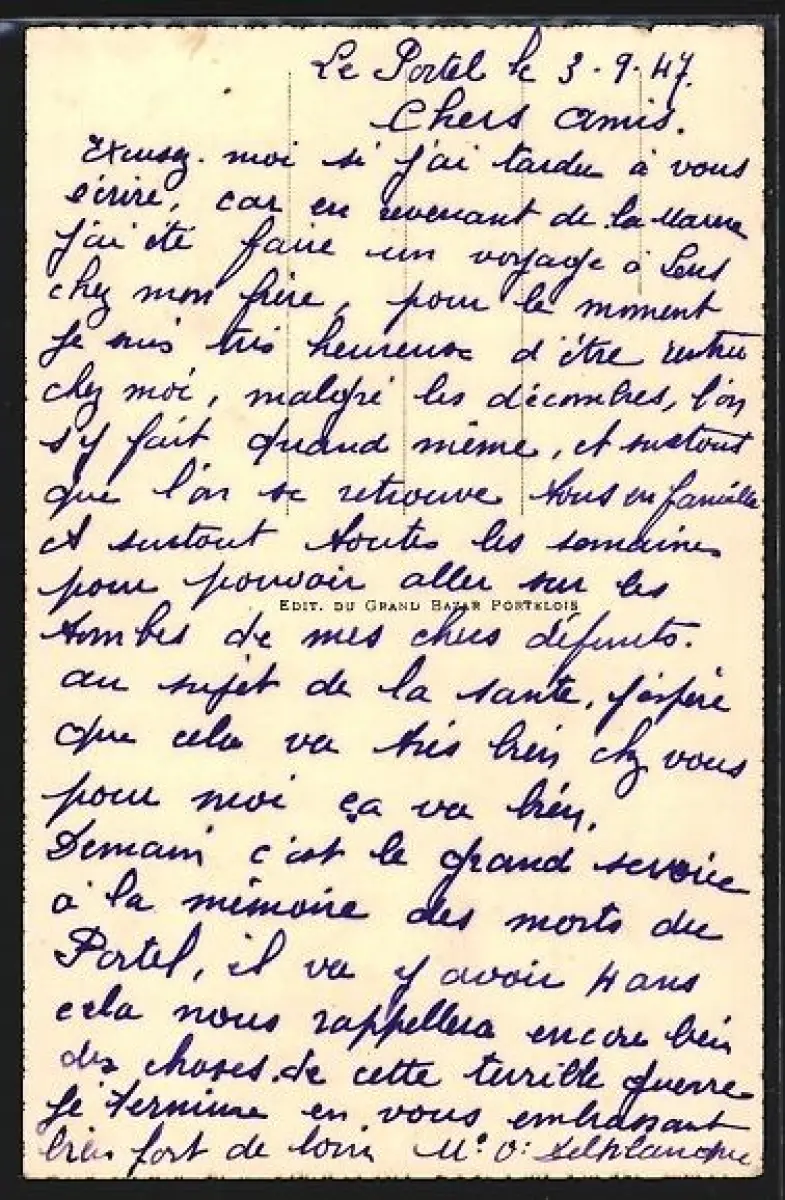 Le Portel le 3-9-47.
Chers amis.
Excusez-moi si j'ai tardu à vous
écrire, car en revenant de la Marne
j'ai été faire un voyage à Lens
chez mon frère, pour le moment
je suis très heureuse d'être rentrée
chez moi, malgré les décombres, l'on
s'y fait quand même, et surtout
que l'on se retrouve tous en famille
et surtout toutes les semaines
pour pouvoir aller sur les
EDIT. DU GRAND BAZAR PORTELOIS
tombes de mes chers défunts.
au sujet de la santé, j'espère
que cela va très bien chez vous
pour moi ça va bien.
Demain c'est le grand service
à la mémoire des morts du
Portel, il va y avoir 4 ans
cela nous rappellera encore bien
des choses de cette terrible guerre
Je termine en vous embrassant
bien fort de loin Delplanque